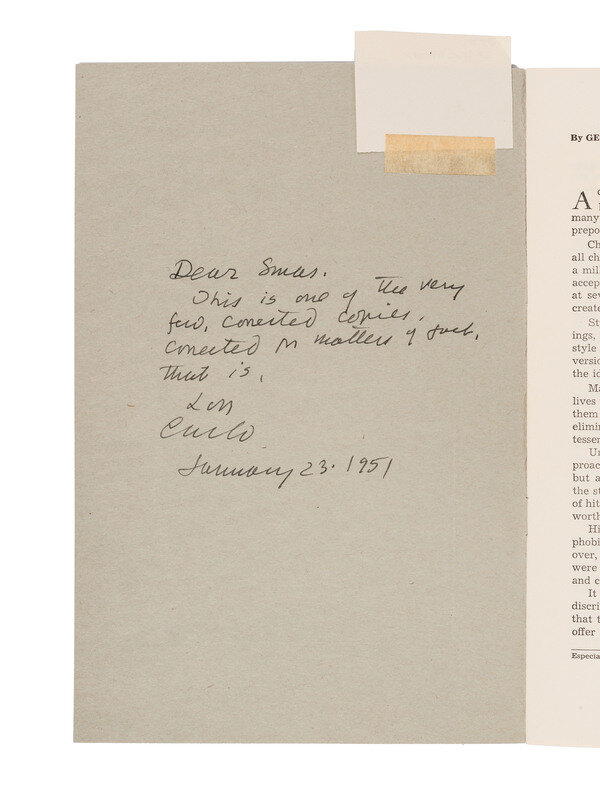 Dear
This is one of the very
few, corrected copies.
Corrected in matters of fact,
that is.
Carlo
January 23. 1951
By GE
A
many
prepo
Ch
all ch
a mil
accep
at sev
create
St
ings,
style
versio
the id
Ma
lives
them
elimin
tesser
Un
proac
but a
the st
of hit
worth
Hi
phobi
over,
were
and c
It
discri
that t
offer
Especia